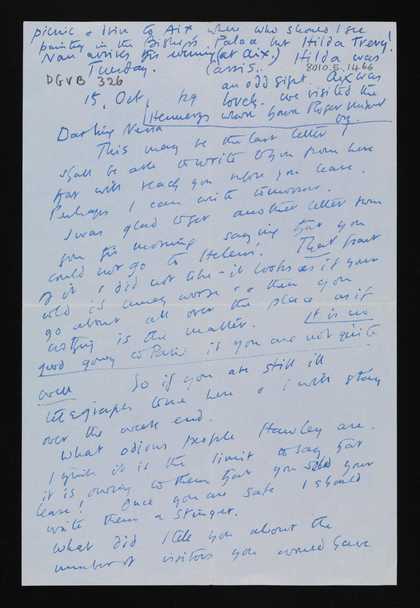 picnic & I ran to Aix where who should I see
painting in the Bishop's Palace but Hilda Trevy!
Nan arrives this evening (at Aix.) Hilda was
Tuesday.
DGVB 326
8010.5.1466
an odd sight. Aix was
15. Oct, lovely. we visited the
Hennerys whom you & Roger visited
Darling Nessa
This may be the last letter I
shall be able to write to you from here
that will reach you before you leave.
Perhaps I can write tomorrow.
I was glad to get another letter from
you this morning saying that you
could not go to Helens! That part
of it I did not like - it looks as if your
cold is much worse & then you
go about all over the place as if
nothing is the matter. It is no
good going to Paris if you are not quite
well So if you are still ill
telegraph to me here & I will stay
over the week end.
What odious people Hawley are.
I think it is the limit to say that
it is owing to them that you sold your
lease! Once you are safe I should
write them a stinger.
What did I tell you about the
number of visitors you would have